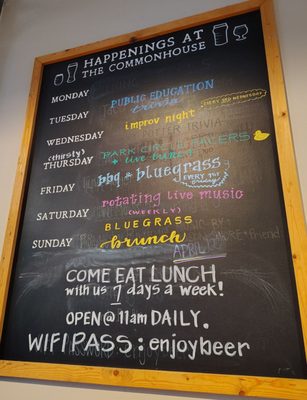 HAPPENINGS AT
THE COMMONHOUSE
MONDAY
PUBLIC EDUCATION
TUESDAY
trivia
EVERY 3RD WEDNESDAY
improv night
WEDNESDAY
TRIVIA
(thirsty)
THURSDAY
PARK CIRCLE
+ live
FRIDAY
bbq * bluegrass
EVERY 1ST FRIDAY
SATURDAY
rotating live music
(WEEKLY)
SUNDAY
BLUEGRASS
brunch
APRIL
COME EAT LUNCH
with us 7 days a week!
OPEN@11am DAILY.
WIFI PASS: enjoybeer